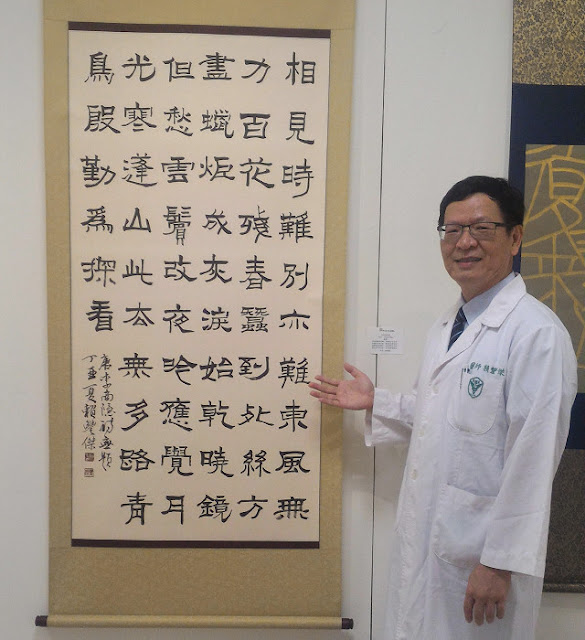 相見時難別亦難東風無
力百花殘春蠶到死絲方
盡蠟炬成灰淚始乾曉鏡
但愁雲鬢改夜吟應覺月
光寒蓬山此去無多路青
鳥殷勤為探看
唐李商隱詩無題
丁酉夏賴傑
醫師